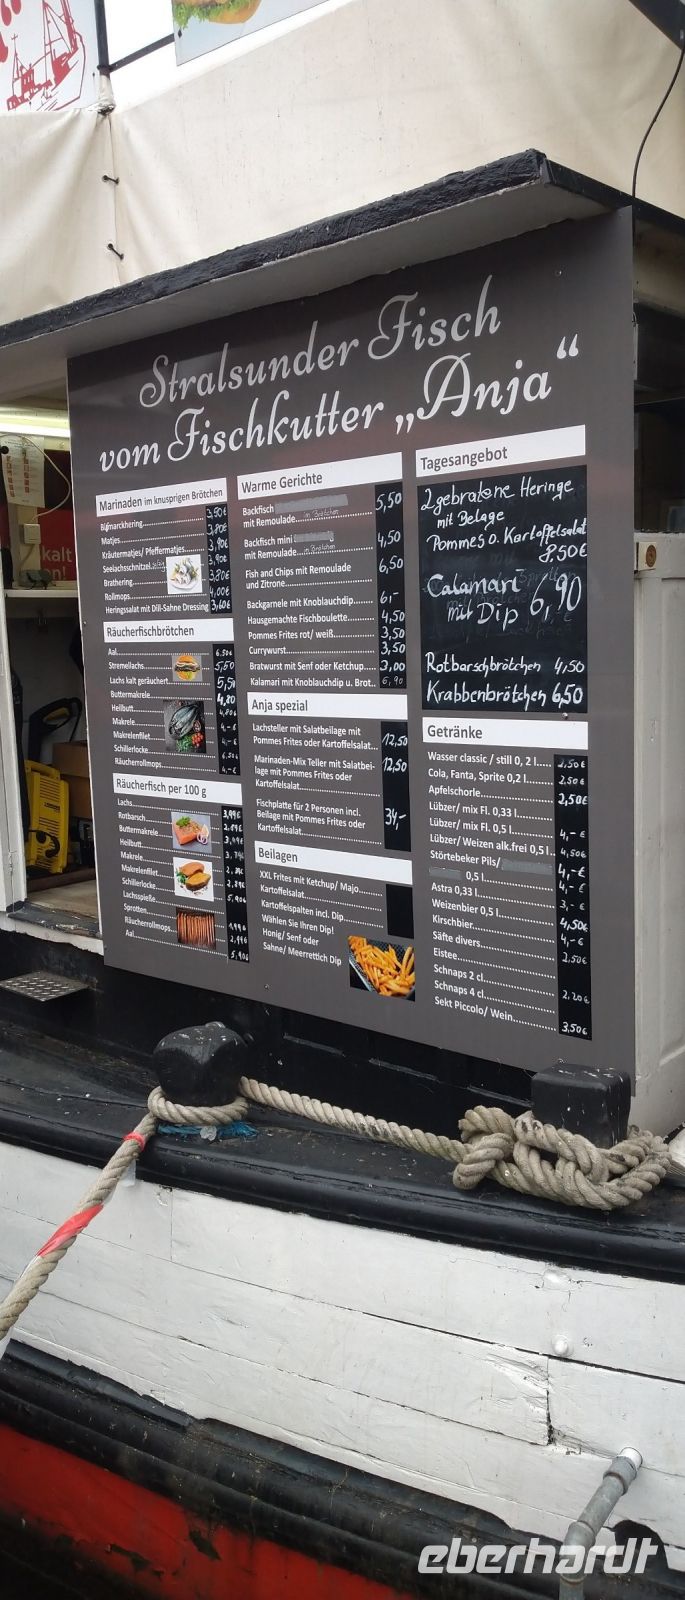 Stralsunder Fisch
vom Fischkutter „Anja“
Marinaden im knusprigen Brötchen
Bismarckhering 3,50€
Matjes 3,80€
Kräutermatjes/ Pfeffermatjes 3,90€
Seelachsschnitzel 3,90€
Brathering 3,80€
Rollmops 4,00€
Heringssalat mit Dill-Sahne Dressing 3,60€
Räucherfischbrötchen
Aal 6,50€
Stremellachs 5,50
Lachs kalt geräuchert 5,5
Buttermakrele 4,80
Heilbutt 4,80€
Makrele 4,-€
Makrelenfilet 4,-€
Schillerlocke 6,50€
Räucherrollmops 4,-€
Räucherfisch per 100 g
Lachs 3,99€
Rotbarsch
Buttermakrele
Heilbutt
Makrele
Makrelenfilet
Schillerlocke
Lachsspieße
Sprotten
Räucherrollmops
Aal 5,90€
Warme Gerichte
Backfisch 5,50
mit Remoulade in Brötchen
Backfisch mini 4,50
mit Remoulade in Brötchen
Fish and Chips mit Remoulade 6,50
und Zitrone
Backgarnele mit Knoblauchdip 6,-
Hausgemachte Fischboulette 4,50
Pommes Frites rot/ weiß 3,50
Currywurst 3,50
Bratwurst mit Senf oder Ketchup 3,00
Kalamari mit Knoblauchdip u. Brot 6,90
Anja spezial
Lachsteller mit Salatbeilage mit
Pommes Frites oder Kartoffelsalat 12,50
Marinaden-Mix Teller mit Salatbei- 12,50
lage mit Pommes Frites oder
Kartoffelsalat
Fischplatte für 2 Personen incl. 34,-
Beilage mit Pommes Frites oder
Kartoffelsalat
Beilagen
XXL Frites mit Ketchup/ Majo
Kartoffelsalat
Kartoffelspalten incl. Dip
Wählen Sie Ihren Dip!
Honig/ Senf oder
Sahne/ Meerrettich Dip
Tagesangebot
2 gebratene Heringe
mit Beilage
Pommes o. Kartoffelsalat
8.50€
Calamari
mit Dip 6,90
Rotbarschbrötchen 4,50
Krabbenbrötchen 6,50
Getränke
Wasser classic / still 0, 2 l 2,50€
Cola, Fanta, Sprite 0,2 l 2,50€
Apfelschorle 2,50€
Lübzer/ mix Fl. 0,33 l
Lübzer/ mix Fl. 0,5 l 4,-€
Lübzer/ Weizen alk.frei 0,5 l 4,50€
Störtebeker Pils/ 4,-€
0,5 l 4,-€
Astra 0,33 l 3,-€
Weizenbier 0,5 l 4,50€
Kirschbier 4,-€
Säfte divers 2,50€
Eistee
Schnaps 2 cl 2,20€
Schnaps 4 cl
Sekt Piccolo/ Wein 3,50€
kalt
eberhardt